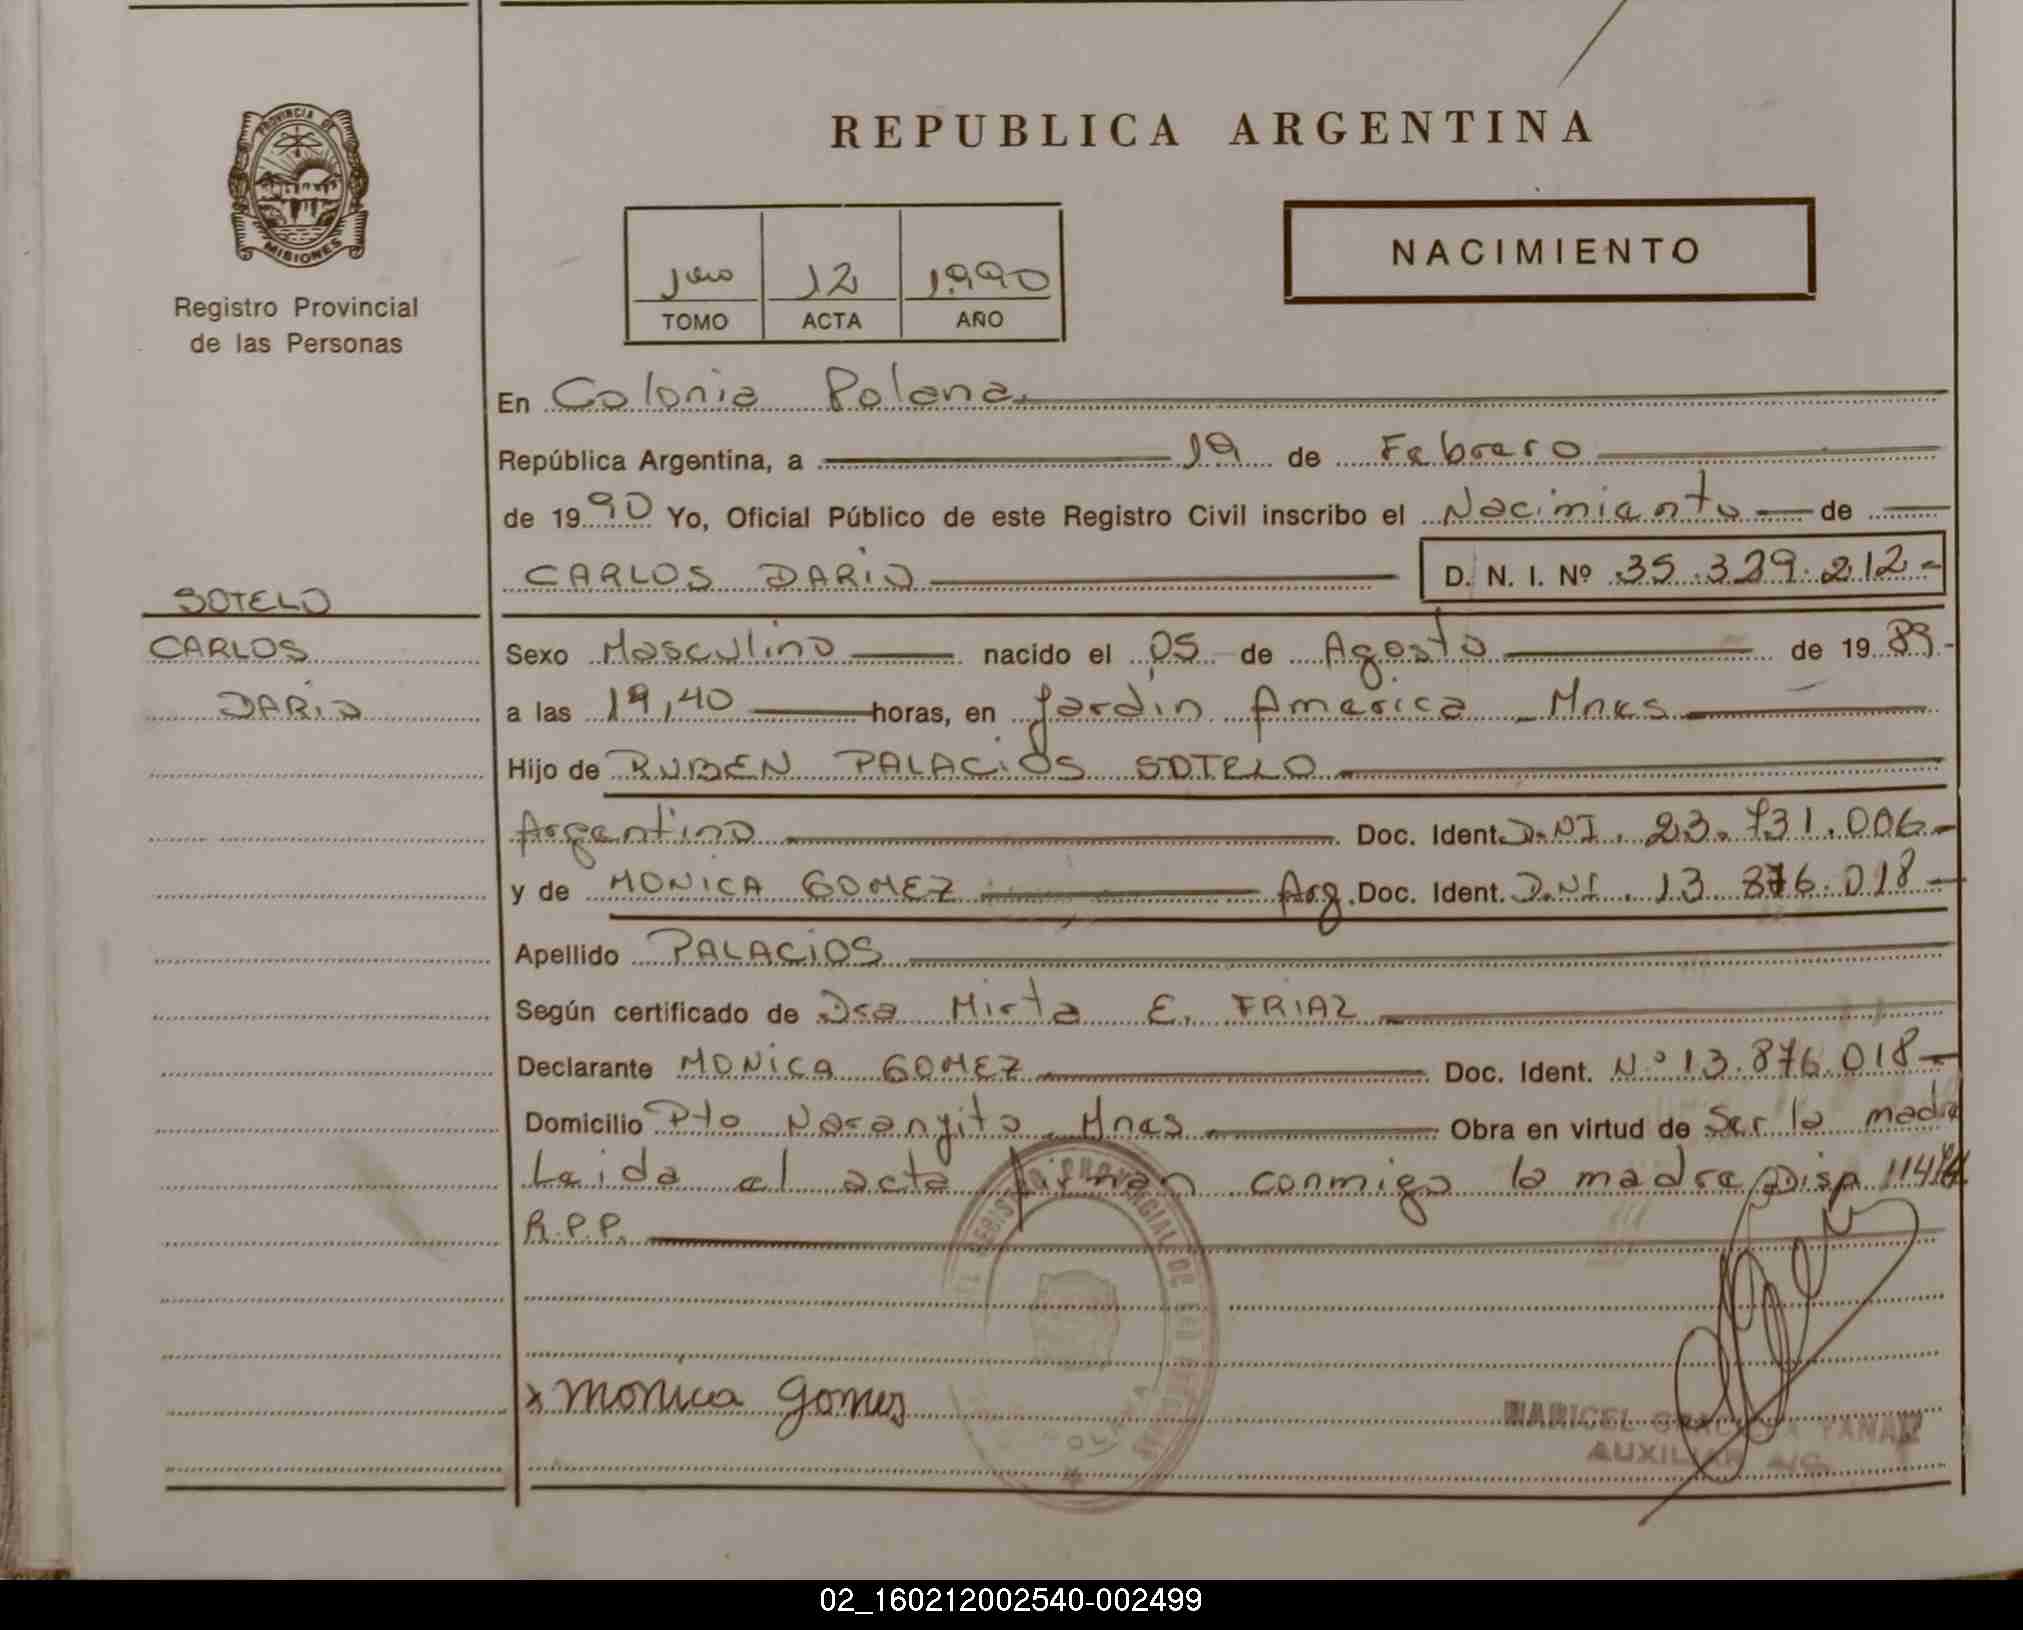 PROVINCIA DE
MISIONES
Registro Provincial
de las Personas
REPUBLICA ARGENTINA
12 1.990
TOMO ACTA AÑO
NACIMIENTO
En Colonia Polana
República Argentina, a 19 de Febrero
de 1990 Yo, Oficial Público de este Registro Civil inscribo el Nacimiento de
CARLOS DARIO D. N. I. Nº 35.329.212-
SOTELO
CARLOS
DARIO
Sexo Masculino nacido el 05 de Agosto de 1989-
a las 19,40 horas, en Jardin America - Mnes
Hijo de RUBEN PALACIOS SOTELO
Argentino Doc. Ident. D.NI. 23.731.006-
y de MONICA GOMEZ Arg. Doc. Ident. D.NI. 13.876.018-
Apellido PALACIOS
Según certificado de Dra Mirta E. FRIAZ
Declarante MONICA GOMEZ Doc. Ident. N.º 13.876.018-
Domicilio Pto Naranjito Mnes Obra en virtud de Ser la madre
Leida el acta firman conmigo la madre Disp
R.P.P.
x Monica Gomez
MARICEL
AUXILIAR
02_160212002540-002499